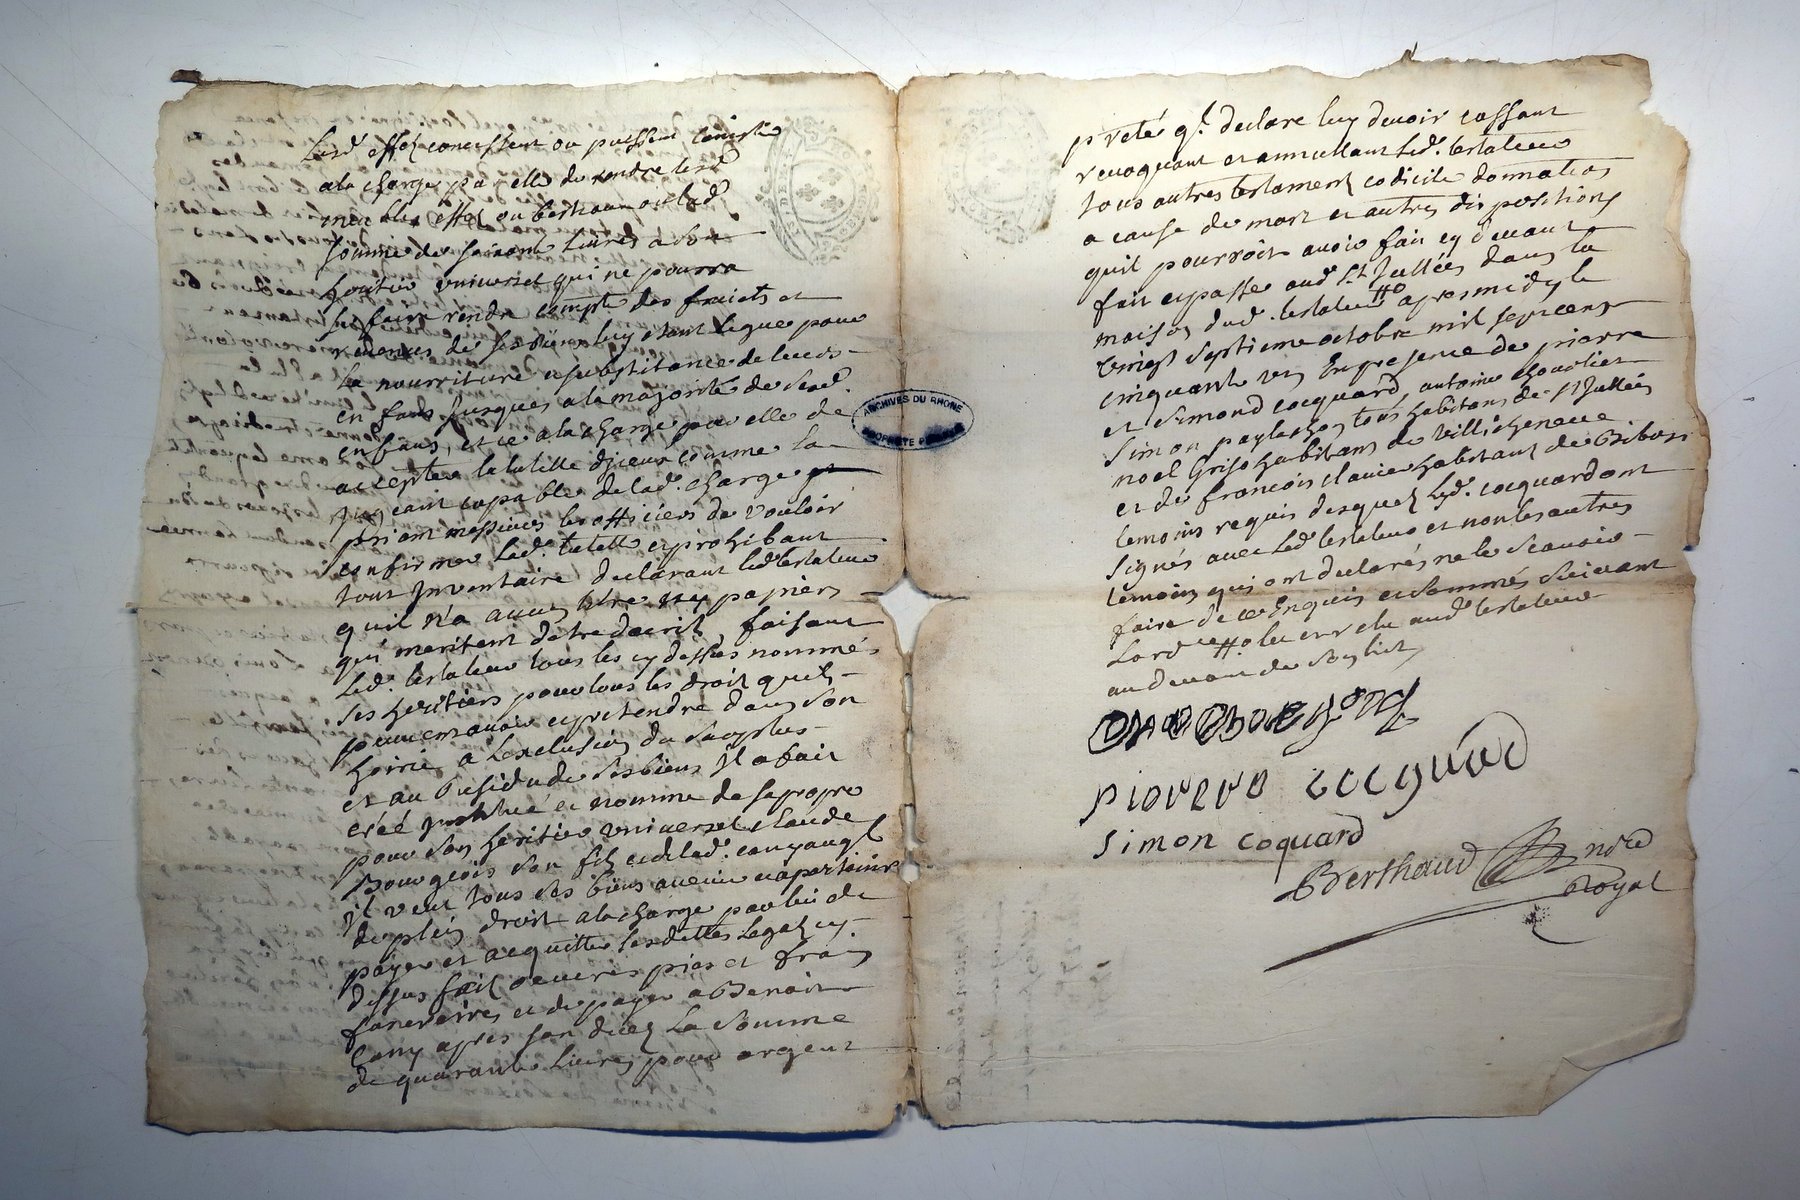 Lesd. effet concistent ou puissent concister
a la charge par elle de rendre lesd.
meubles effet ou bestiaux ou lad.
somme de soixante livres a son
heritier universel qui ne pourra
luy faire rendre compte des fruicts et
revenus de ses biens luy etant legués pour
la nourriture et substitance de leurs
enfans jusques a la majorité de sesd.
enfans, et ce a la charge par elle de
accepter la tutelle d'jceux comme la
sçait capable de lad. charge
priant messieurs les officiers de vouloir
confirmer lad. tutelle et prohibant
tout Inventaire declarant led. testateur
quil n'a aucun titre ny papiers
qui meritent detre decrit, faisant
led. testateur tous les cy dessus nommés
ses heritiers pour tous les droit quils
peuvent avoir et pretendre dans son
hoirie a Lexclusion du surplus
et au Residu de ses biens Il a fait
créé Institué et nomme de sa propre
pour son heritier universel Claude
Bourgeois son fils et de lad.
Il veut tous ses biens avenir et apartenir
de plein droit a la charge par luy de
payer et acquitter les dettes Legat cy
dessus fait oeuvres pies et frais
funeraires et de payer a Benoit
Cony apres son decez La Somme
de quarante Livres pour argent
preté q.l declare luy devoir cassant
revoquant et annullant led. testateur
tous autres testament codicile donnation
a cause de mort et autres dispositions
quil pourroit avoir fait cy devant
fait et passé aud. St Jullien dans la
maison dud. testateur apres midy le
vingt septieme octobre mil sept cent
cinquante un En presence de pierre
et Simond cocquard, antoine
Simon tous habitans de St Jullien
noel habitant de Villicheneve
et de francois habitant de
temoins requis desquels led. cocquard ont
signés avec led. testateur et non les autres
temoins qui ont declarés ne le scavoir
faire de ce Enquis et sommés suivant
Lord.ce leu et relu aud. testateur
au devant de son lict
pierere cocquard
simon coquard
Berthaud no.re
Royal
ARCHIVES DU RHONE
PROPRIETE PUBLIQUE